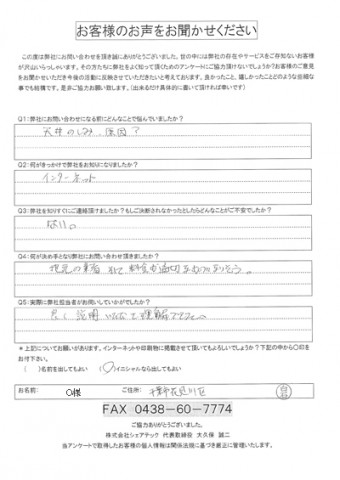 お客様のお声をお聞かせください
この度は弊社にお問い合わせを頂き誠にありがとうございました。世の中には弊社の存在やサービスをご存知ないお客様
が沢山いらっしゃいます。その方たちに弊社をよく知って頂くためのアンケートにご協力頂けないでしょうか？お客様のご意見
をお聞かせいただき今後の活動に反映させていただきたいと考えております。良かったこと、嬉しかったことどのような些細な
事でも結構です。是非ご協力お願い致します。（出来るだけ具体的に書いて頂ければ幸いです）
Q1：弊社にお問い合わせになる前にどんなことで悩んでいましたか？
天井のしみ、原因？
Q2：何がきっかけで弊社をお知りになりましたか？
インターネット
Q3：弊社を知りすぐにご連絡頂けましたか？もしご決断されなかったとしたらどんなことがご不安でしたか？
ない。
Q4：何が決め手となり弊社にお問い合わせ頂きましたか？
地元の業者
Q5：実際に弊社担当者がお伺いしていかがでしたか？
良く説明いただき理解できた。
＊上記についてお願いがあります。インターネットや印刷物に掲載させて頂いてもよろしいでしょうか？下記の中から〇印を
お付下さい。
（　）名前を出してもよい　（〇）イニシャルなら出してもよい
お名前：　O様　ご住所：　千葉市花見川区
FAX 0438-60-7774
ご協力ありがとうございました。
株式会社シェアテック 代表取締役 大久保 誠二
当アンケートで取得したお客様の個人情報は関係法規に基づき厳正に管理いたします。